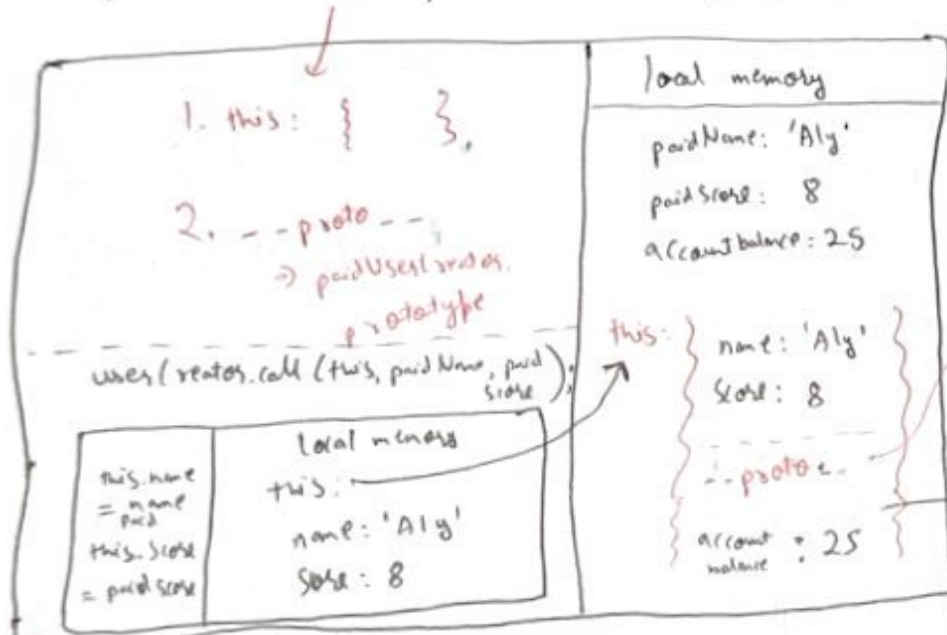 1. this: { },
2. --proto--
⇒ paidUserCreator.
prototype
userCreator.call (this, paidName, paid
score);
this.name
= name
paid
this.score
= paidscore
local memory
this:
name: 'Aly'
Sore: 8
local memory
paidName: 'Aly'
paidScore: 8
accountbalance: 25
this:
name: 'Aly'
Score: 8
--proto--
account : 25
balance